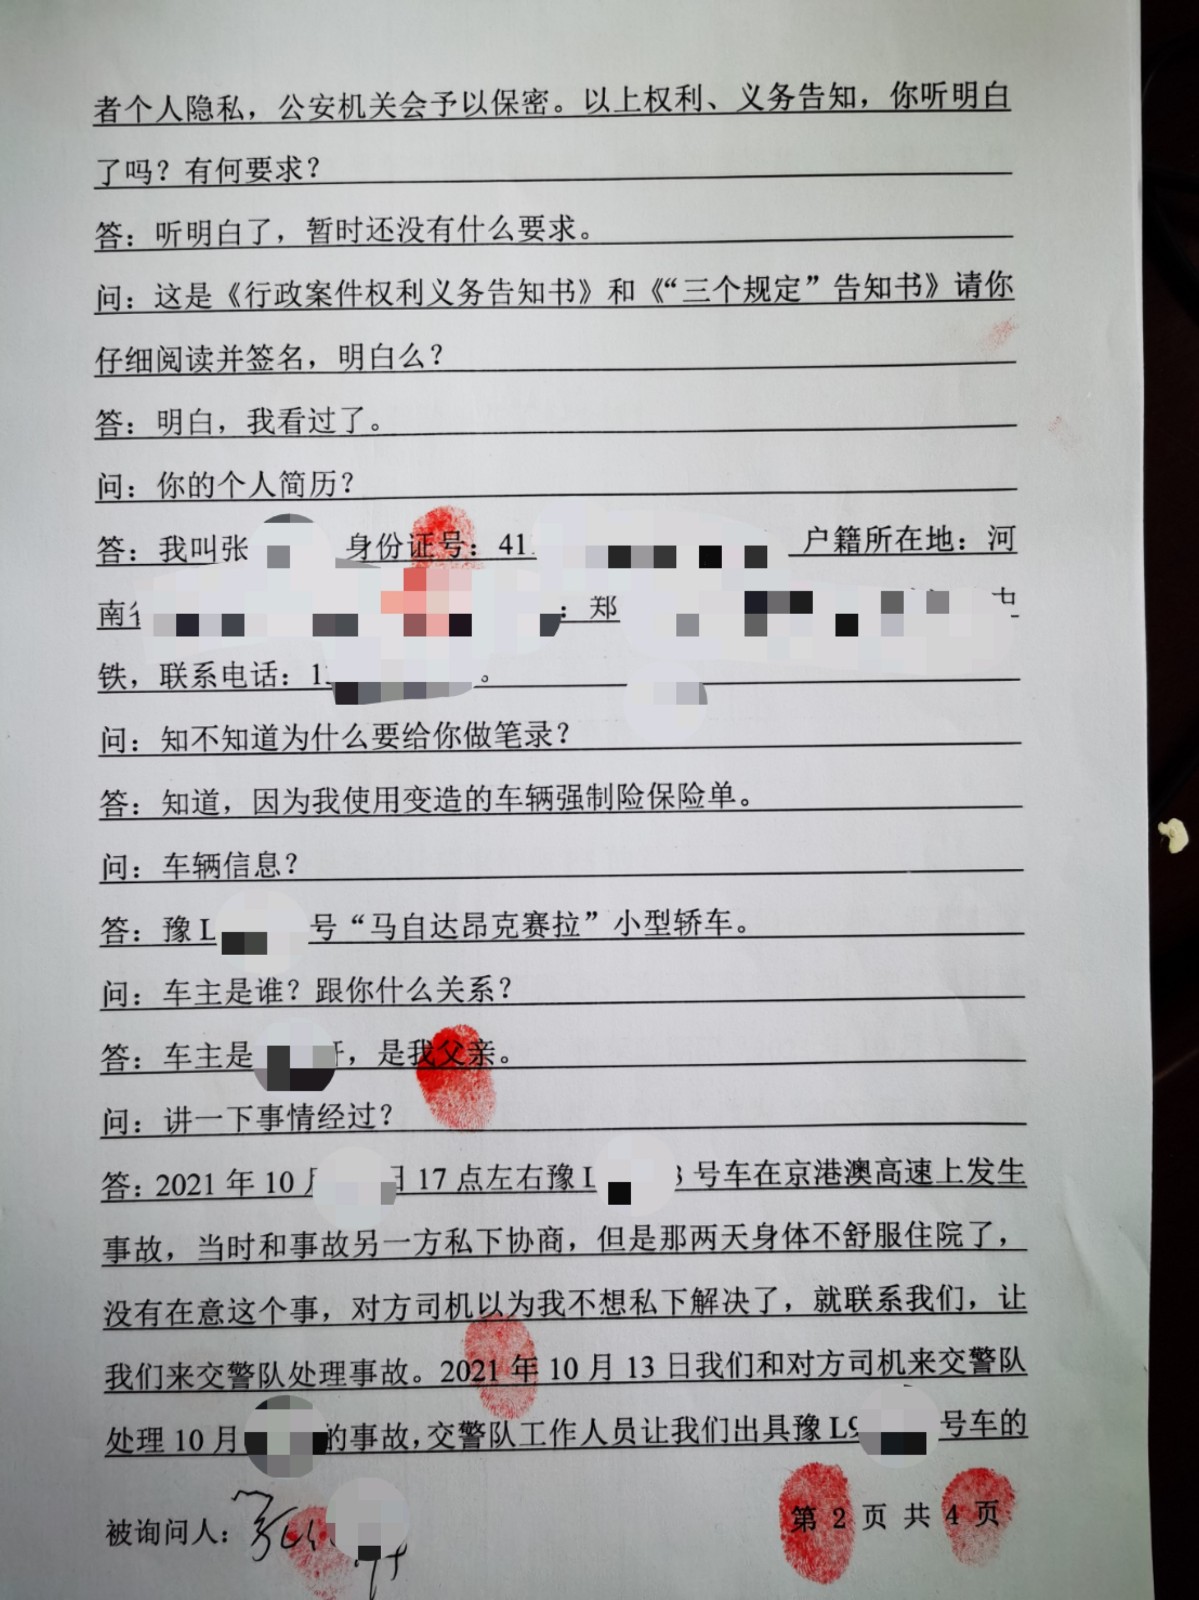 者个人隐私，公安机关会予以保密。以上权利、义务告知，你听明白
了吗？有何要求？
答：听明白了，暂时还没有什么要求。
问：这是《行政案件权利义务告知书》和《“三个规定”告知书》请你
仔细阅读并签名，明白么？
答：明白，我看过了。
问：你的个人简历？
答：我叫张 身份证号：41 户籍所在地：河
南 ：郑
铁，联系电话：1 。
问：知不知道为什么要给你做笔录？
答：知道，因为我使用变造的车辆强制险保险单。
问：车辆信息？
答：豫L 号“马自达昂克赛拉”小型轿车。
问：车主是谁？跟你什么关系？
答：车主是 ，是我父亲。
问：讲一下事情经过？
答：2021 年 10 日 17 点左右豫L 号车在京港澳高速上发生
事故，当时和事故另一方私下协商，但是那两天身体不舒服住院了，
没有在意这个事，对方司机以为我不想私下解决了，就联系我们，让
我们来交警队处理事故。2021 年 10 月 13 日我们和对方司机来交警队
处理 10 月 的事故，交警队工作人员让我们出具豫 L9 号车的
被询问人： 第 2 页 共 4 页